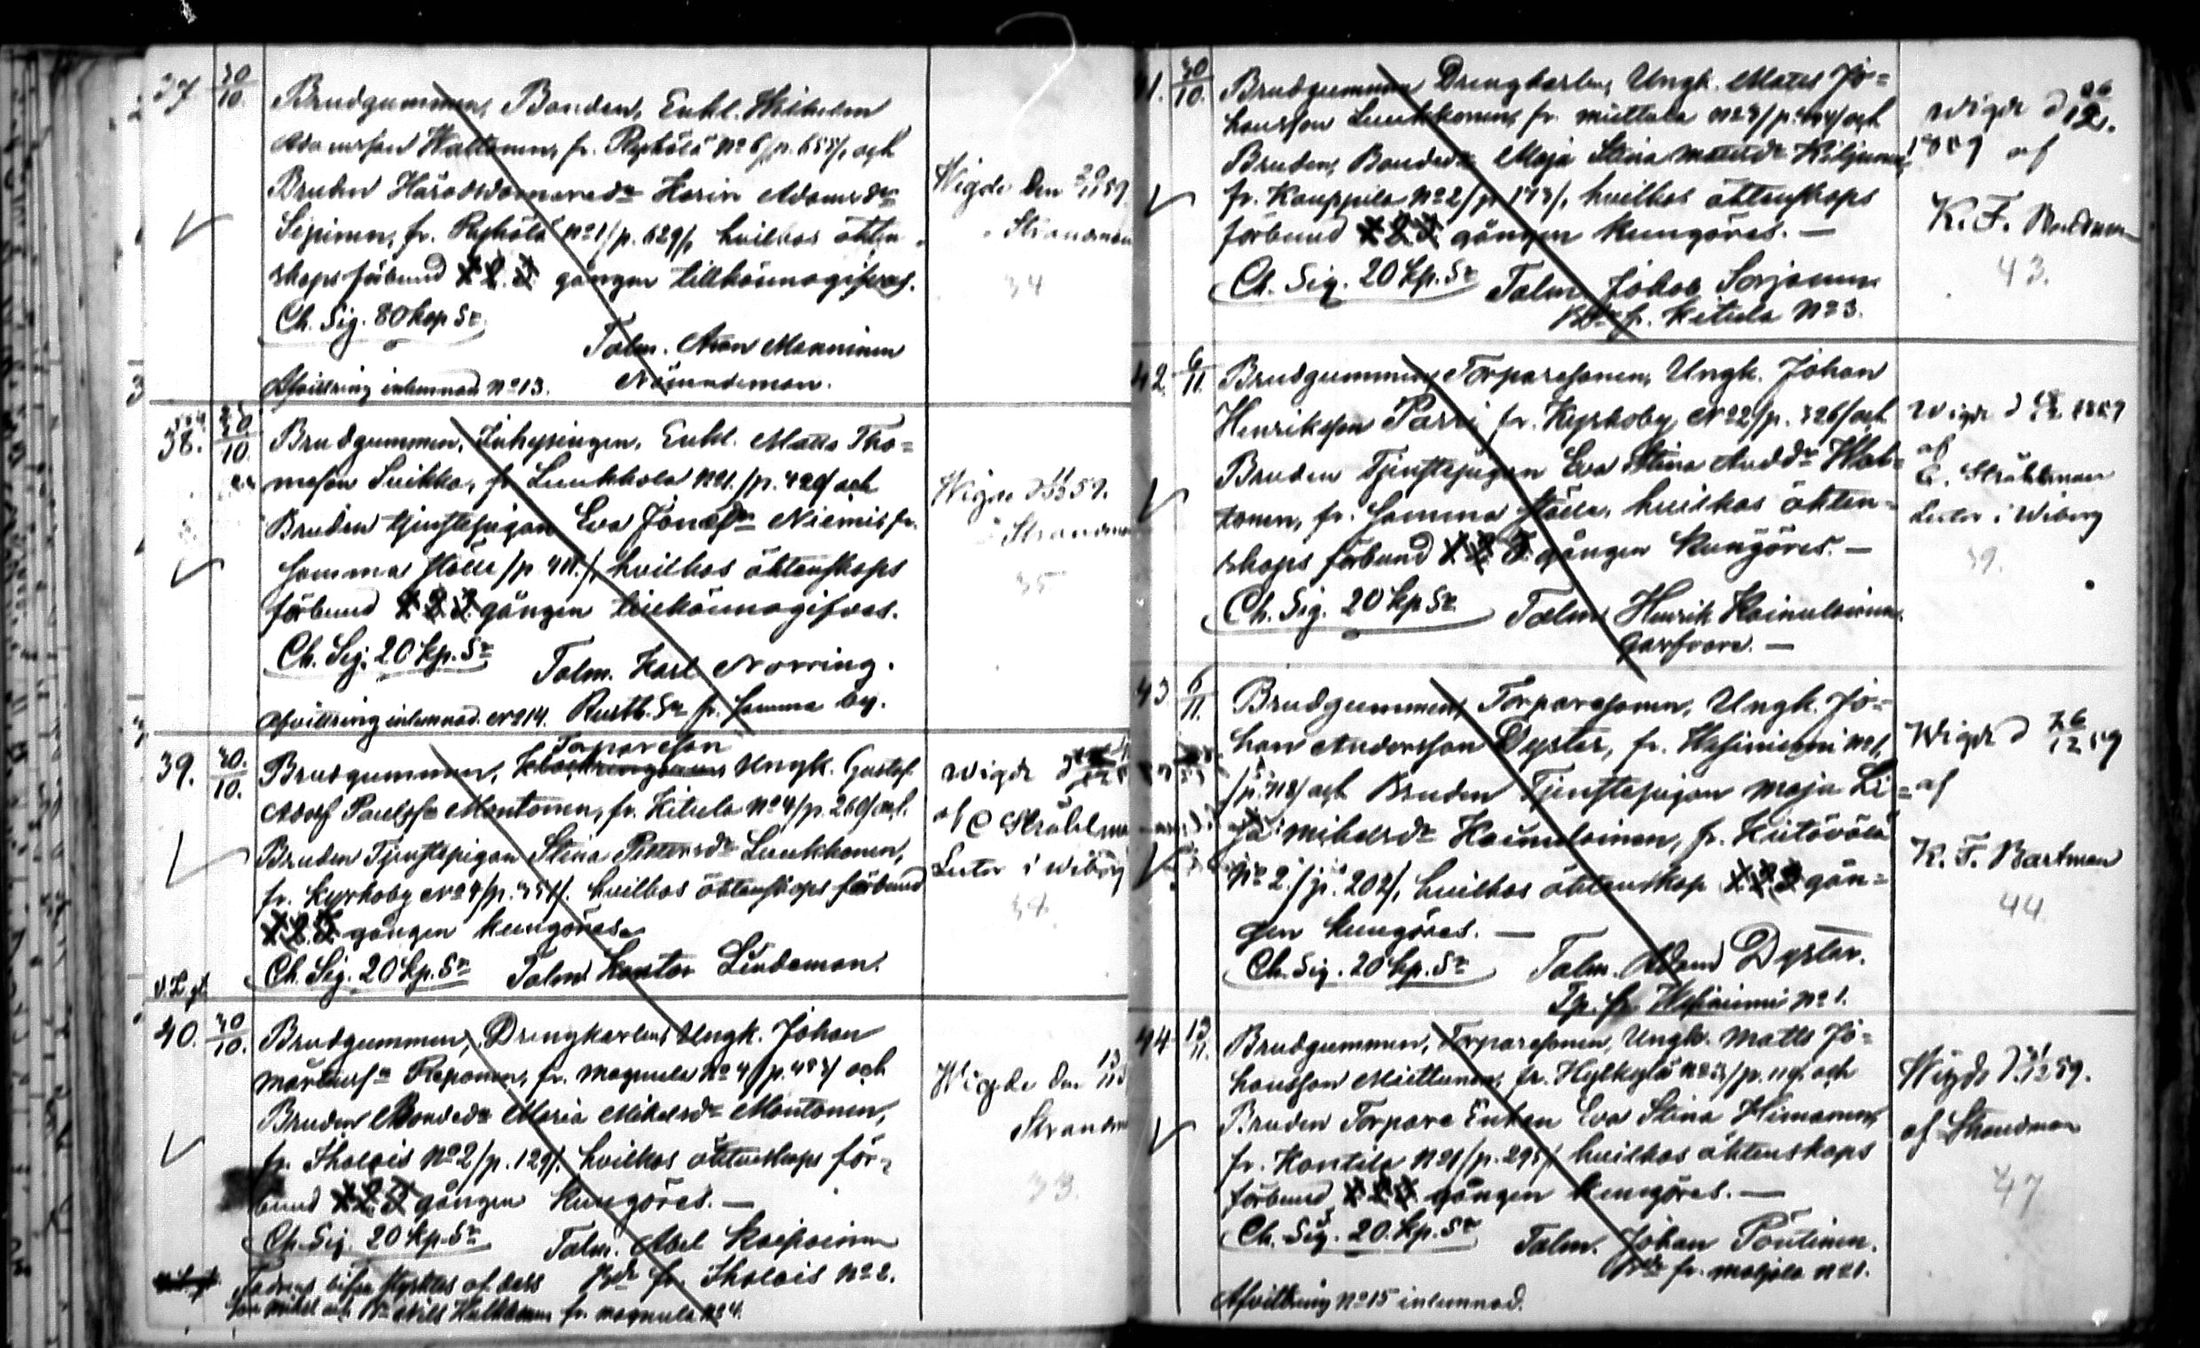 37 30/10. Brudgummen, Bonden, Enkl. Wilhelm
Adamsson Wattanen, fr. Pyhölä No 6/p. 655/, och
Bruden Häradsdomaredr Karin Adamsdr
fr. No 1/p. 629/, hvilkas äkten-
skapsförbund 1 2. 3 gången tillkännagifvas.
Ch. Sig. 80 kop Sr.
Talm. Aron Manninen
Nämndeman.
Afvittring inlemnad No 13.
Wigde den 20/11 59.
Strandman
34
38. 30/10. Brudgummen, Inhysingen, Enkl. Matts Tho-
masson Suikka, fr. Luukkola No 1./p. 420/ och
Bruden tjenstepigan Eva Jonædr Niemis fr.
samma ställe /p. 411./, hvilkas äktenskaps
förbund 1 2 3 gången tillkännagifvas.
Ch. Sig. 20 kp. Sr
Talm. Karl Norring.
Rusth. Sn fr. samma by.
Afvittring inlemnad No 14.
Strandman
35
39. 30./10. Brudgummen, Torpareson Ungk. Gustaf
Adolf Paulss. Montonen, fr. Kitula No 4/p. 260/ och
Bruden Tjenstepigan Stina Pettersdr Luukkonen,
fr. Kyrkoby No 4/p. 351/. hvilkas äktenskaps förbund
1. 2. 3 gången kungöres.
Ch. Sig. 20 kp. Sr
Talm. Kantor Lindeman.
Wigde d
af E Stråhlman
Lector i Wiborg
40. 30/10. Brudgummen, Drengkarlen, Ungk. Johan
Mårtenss. Reponen, fr. Magnula No 4/p. 457/ och
Bruden Bondedr Maria Mikelsdr Montonen,
fr. Iholais No 2/p. 129/. hvilkas äktenskaps för-
bund 1. 2. 3 gången kungöres. —
Ch. Sig. 20 kp. Sr
Talm. Abel Karjainen
Bdr fr. Iholais No 2.
fr. Magnula No 4.
Wigde den 13/11
Strandm
33.
41. 30/10. Brudgummen Drengkarlen, Ungk. Matts Jo-
hansson Luukkonen, fr. Miettola No 3/p. 454/ och
Bruden, Bondedr Maja Stina Mattsdr Kiljunen,
fr. Kauppila No 2/p 173/, hvilkas äktenskaps
förbund 1 2 3 gången kungöres. —
Ch. Sig. 20 kp. Sr
Talm. Jakob Sorjonen
Bdn fr. Kitula No 3.
Wigde d 26/12.
1859 af
K. F. Bartman
43.
42 6/11. Brudgummen, Torparesonen, Ungk. Johan
Henriksson Parri fr. Kyrkoby No 2/p. 326/ och
Bruden Tjenstepigan Eva Stina Anddr Wat-
tanen, fr. samma ställe, hvilkas äkten-
skaps förbund 1 2 3. gången kungöres. —
Ch. Sig. 20 kp Sr
Talm. Henrik Kainulainen
Garfvare. —
Wigde d 1859
af
E. Stråhlman
Lector i Wiborg
39.
43 6/11. Brudgummen, Torparesonen, Ungk. Jo-
han Andersson Dyster, fr. Wesiniemi No 1,
/p. 118/ och Bruden Tjenstepigan Maja Li-
sa Mikelsdr Kainulainen, fr. Kiitävälä
No 2./p. 202/, hvilkas äktenskap 1 2 3 gån-
gen kungöres. —
Ch. Sig. 20 kp. Sr
Talm. Adam Dyster.
Tp. fr. Wesiniemi No 1.
Wigde d 26/12 59
af
K. F. Bartman
44
44 13/11. Brudgummen, Torparesonen, Ungk. Matts Jo-
hansson Miettinen, fr. Hytkylä No 3/p. 119/. och
Bruden Torpare Enkan Eva Stina Himanen,
fr. Kontila No 1/p. 295/ hvilkas äktenskaps
förbund 1 2 3 gången kungöres. —
Ch. Sig. 20. kp. Sr
Talm. Johan Pöntinen.
Bdr fr. Matjola No 1.
Afvittring No 15 inlemnad.
Wigde d 31/12 59.
af Strandman
47